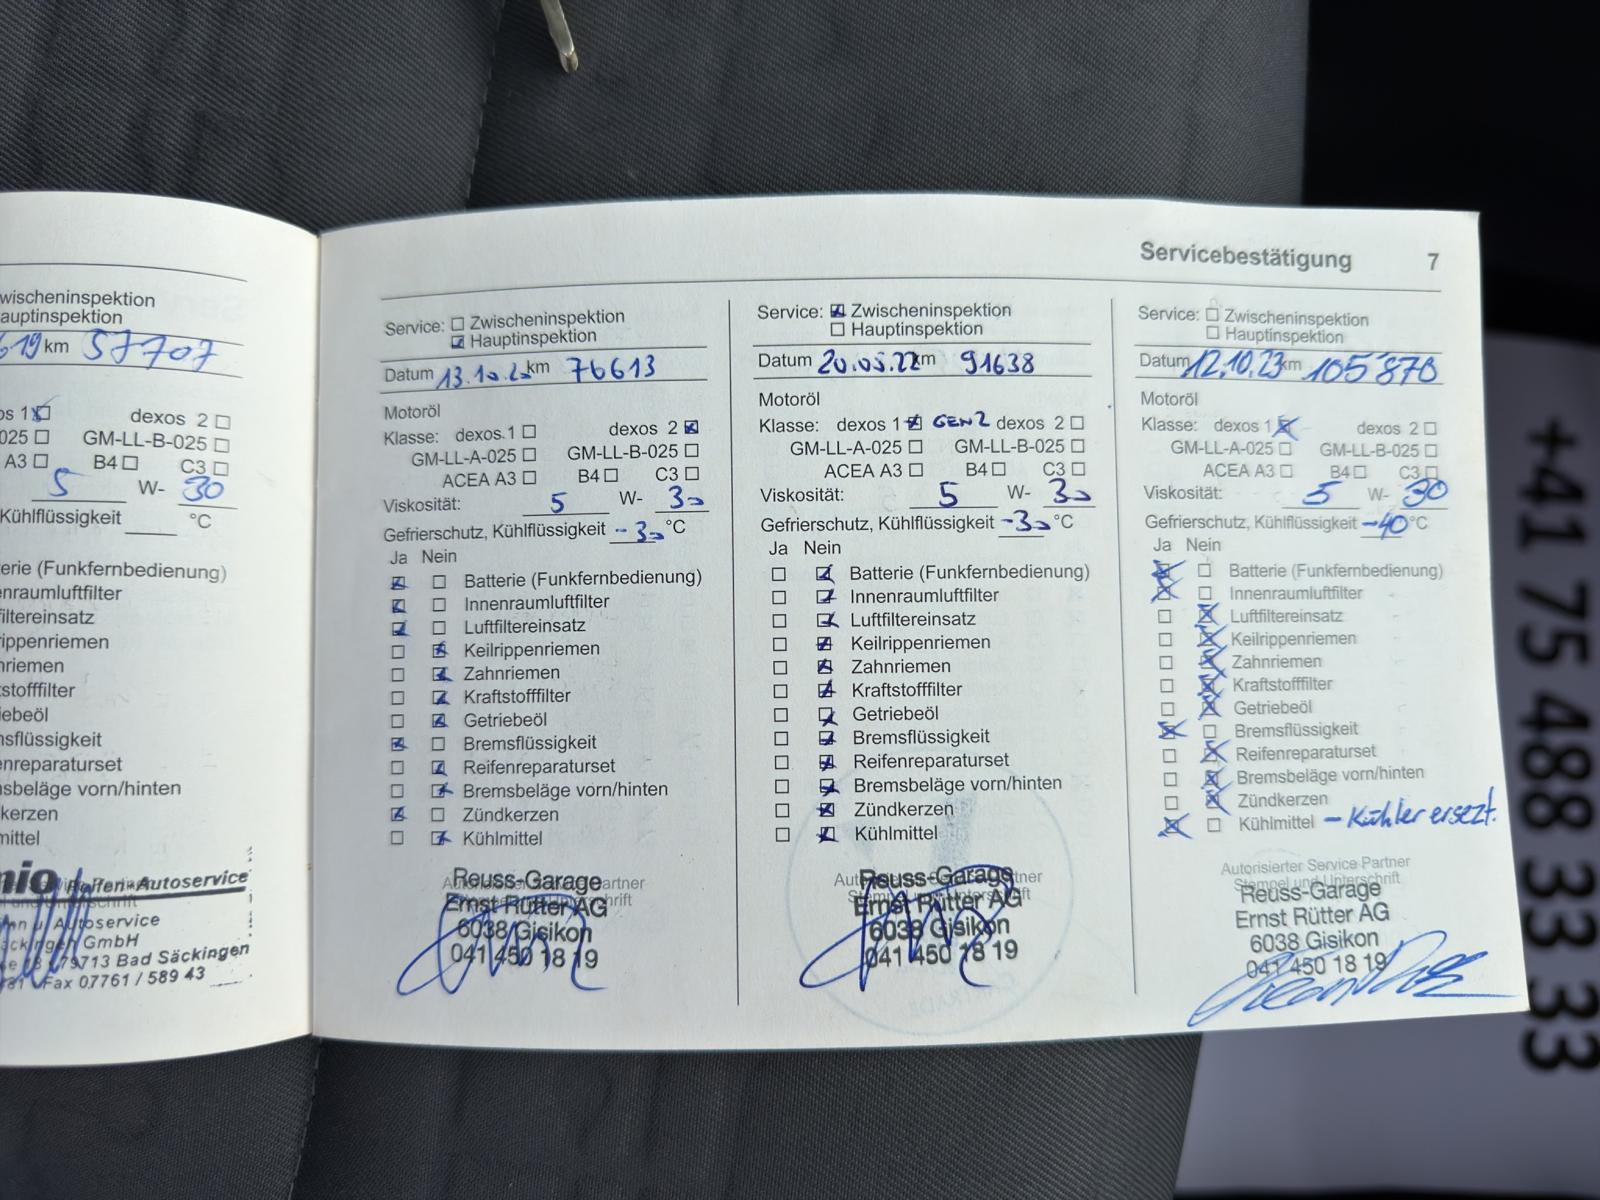 wischeninspektion
auptinspektion
619 km 57707
os 1 dexos 2
025 GM-LL-B-025
A3 B4 C3
5 W- 30
Kühlflüssigkeit °C
erie (Funkfernbedienung)
enraumluftfilter
filtereinsatz
rippenriemen
nriemen
tstofffilter
iebeöl
nsflüssigkeit
enreparaturset
nsbeläge vorn/hinten
kerzen
mittel
mio Reifen+Autoservice
n u. Autoservice
äckingen GmbH
79713 Bad Säckingen
Fax 07761 / 589 43
Servicebestätigung 7
Service: Zwischeninspektion
Hauptinspektion
Datum 13.10.20 km 76613
Motoröl
Klasse: dexos 1 dexos 2
GM-LL-A-025 GM-LL-B-025
ACEA A3 B4 C3
Viskosität: 5 W- 30
Gefrierschutz, Kühlflüssigkeit -30 °C
Ja Nein
Batterie (Funkfernbedienung)
Innenraumluftfilter
Luftfiltereinsatz
Keilrippenriemen
Zahnriemen
Kraftstofffilter
Getriebeöl
Bremsflüssigkeit
Reifenreparaturset
Bremsbeläge vorn/hinten
Zündkerzen
Kühlmittel
Reuss-Garage
Ernst Rütter AG
6038 Gisikon
041 450 18 19
Service: Zwischeninspektion
Hauptinspektion
Datum 20.05.22 km 91638
Motoröl
Klasse: dexos 1 GEN2 dexos 2
GM-LL-A-025 GM-LL-B-025
ACEA A3 B4 C3
Viskosität: 5 W- 30
Gefrierschutz, Kühlflüssigkeit -30 °C
Ja Nein
Batterie (Funkfernbedienung)
Innenraumluftfilter
Luftfiltereinsatz
Keilrippenriemen
Zahnriemen
Kraftstofffilter
Getriebeöl
Bremsflüssigkeit
Reifenreparaturset
Bremsbeläge vorn/hinten
Zündkerzen
Kühlmittel
Reuss-Garage
Ernst Rütter AG
6038 Gisikon
041 450 18 19
Service: Zwischeninspektion
Hauptinspektion
Datum 12.10.23 km 105'870
Motoröl
Klasse: dexos 1 dexos 2
GM-LL-A-025 GM-LL-B-025
ACEA A3 B4 C3
Viskosität: 5 W- 30
Gefrierschutz, Kühlflüssigkeit -40 °C
Ja Nein
Batterie (Funkfernbedienung)
Innenraumluftfilter
Luftfiltereinsatz
Keilrippenriemen
Zahnriemen
Kraftstofffilter
Getriebeöl
Bremsflüssigkeit
Reifenreparaturset
Bremsbeläge vorn/hinten
Zündkerzen
Kühlmittel - Kühler ersezt.
Autorisierter Service Partner
Stempel und Unterschrift
Reuss-Garage
Ernst Rütter AG
6038 Gisikon
041 450 18 19
+41 75 488 33 33